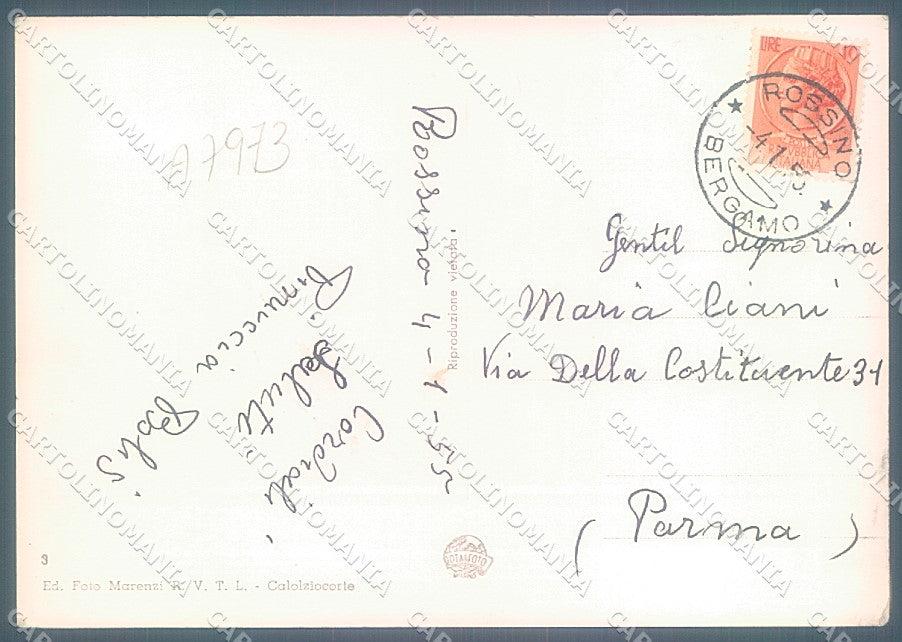 A7973
Rossino 4-1-55
Cordiali
Saluti
Pinuccia Bolis
Riproduzione vietata
3
Ed. Foto Marenzi R. V. T. L. - Calolziocorte
ROTALFOTO
LIRE
ROSSINO
-4.1.55
BERGAMO
Gentil Signorina
Maria Ciani
Via Della Costituente 31
(Parma)
CARTOLINOMANIA